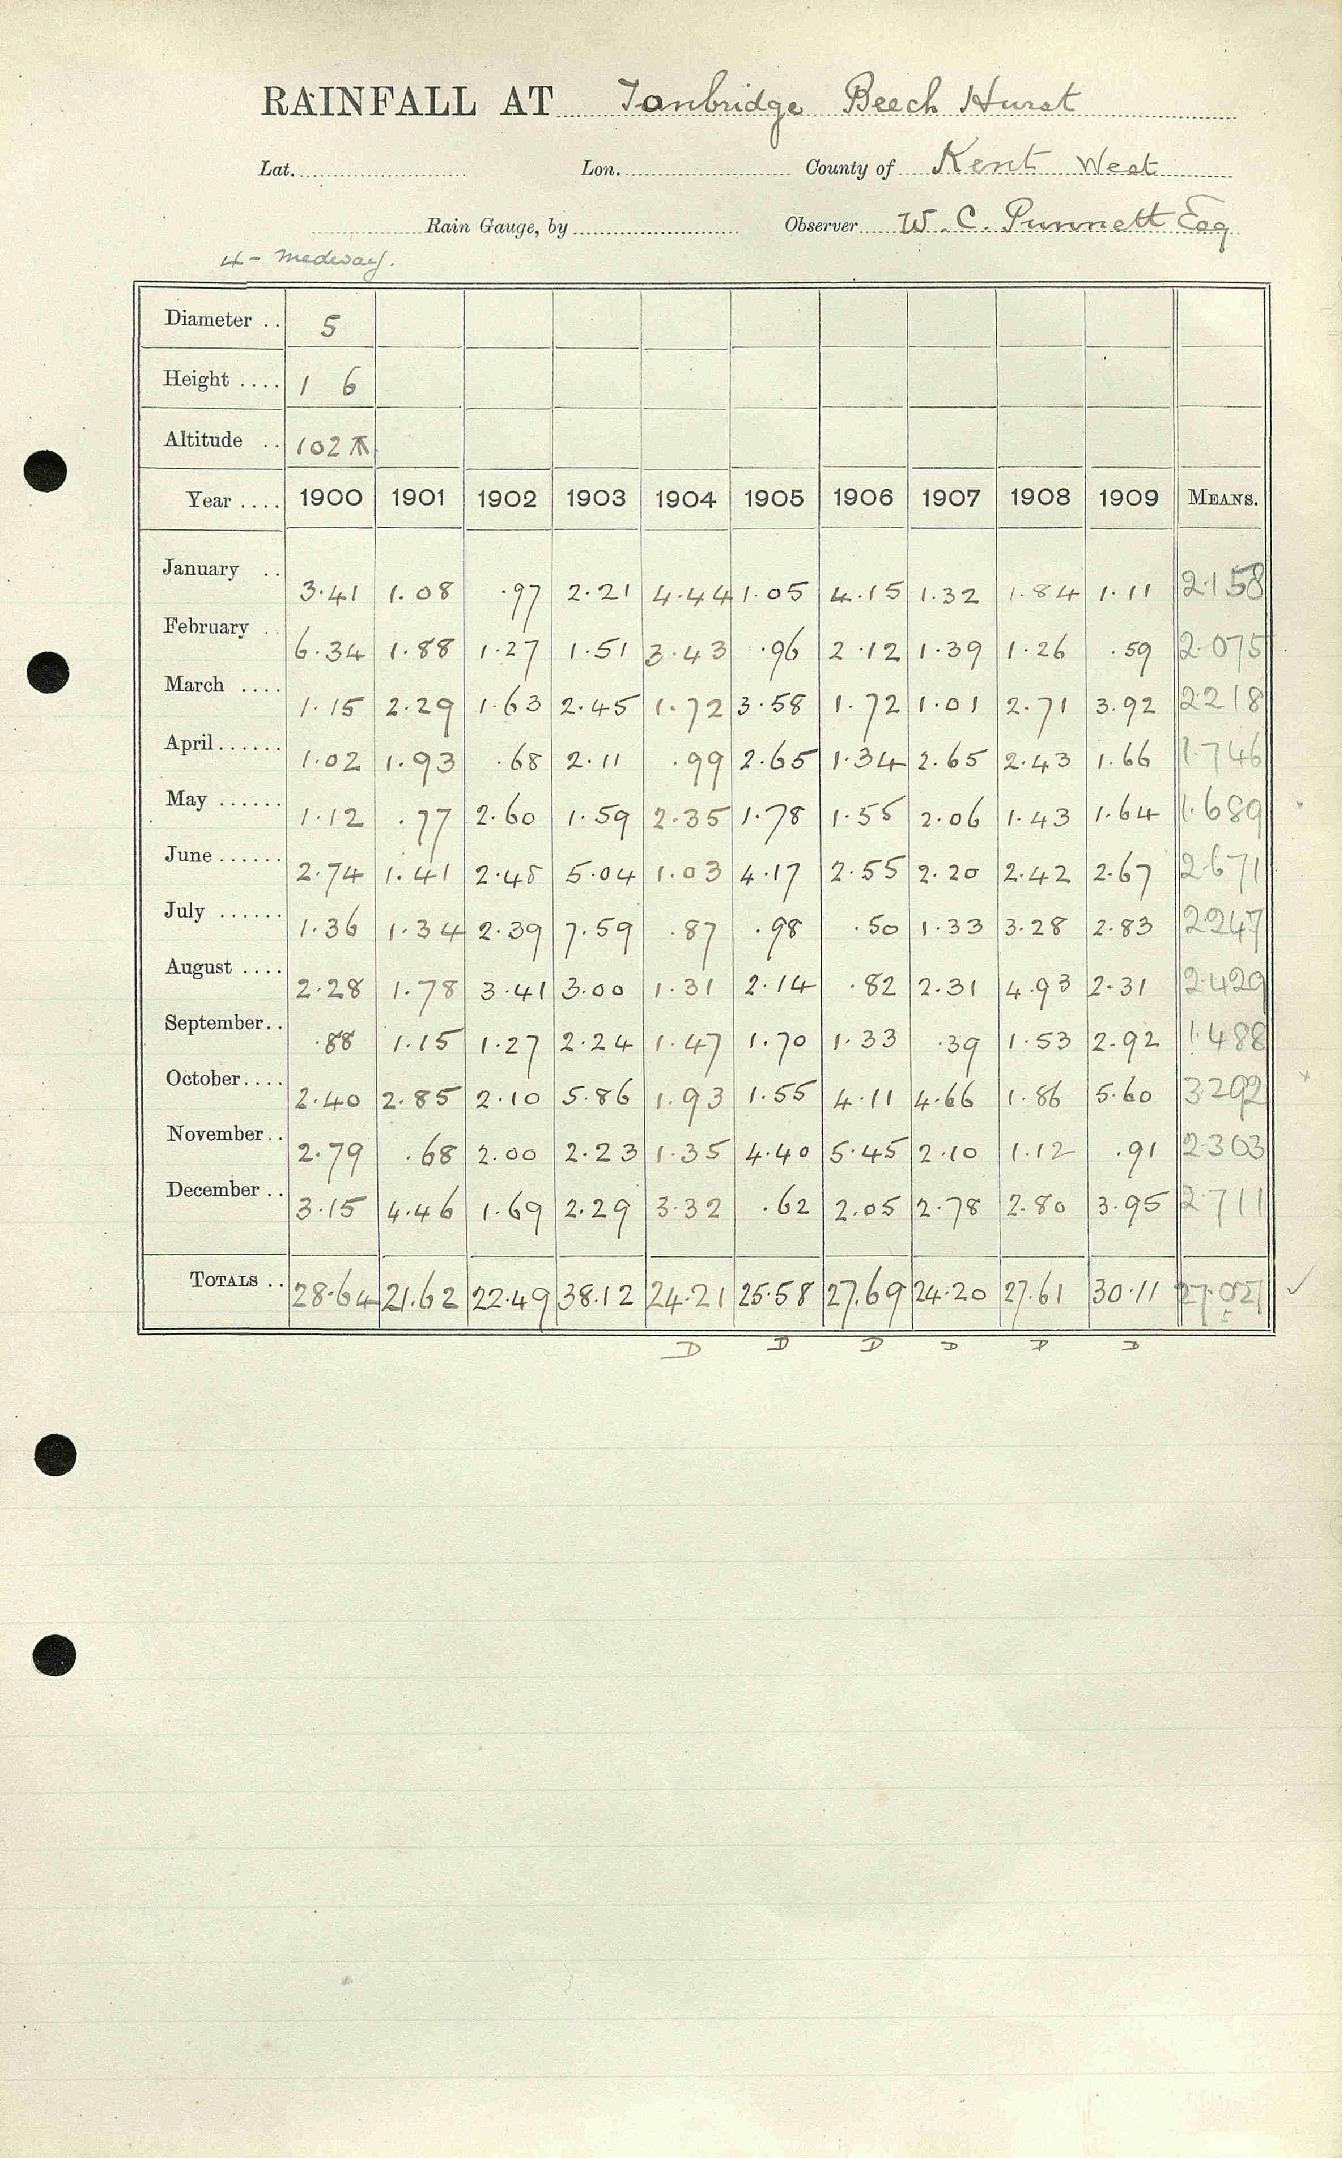 RAINFALL AT Tonbridge Beech Hurst
Lat. Lon. County of Kent West
Rain Gauge, by Observer W. C. Punnett Esq
4 - Medway.
Diameter .. 5
Height .... 1 6
Altitude .. 102
Year .... 1900 1901 1902 1903 1904 1905 1906 1907 1908 1909 MEANS.
January .. 3.41 1.08 .97 2.21 4.44 1.05 4.15 1.32 1.84 1.11 2.158
February .. 6.34 1.88 1.27 1.51 3.43 .96 2.12 1.39 1.26 .59 2.075
March .... 1.15 2.29 1.63 2.45 1.72 3.58 1.72 1.01 2.71 3.92 2218
April...... 1.02 1.93 .68 2.11 .99 2.65 1.34 2.65 2.43 1.66 1.746
May ...... 1.12 .77 2.60 1.59 2.35 1.78 1.55 2.06 1.43 1.64 1.689
June...... 2.74 1.41 2.48 5.04 1.03 4.17 2.55 2.20 2.42 2.67 2.671
July ...... 1.36 1.34 2.39 7.59 .87 .98 .50 1.33 3.28 2.83 2247
August .... 2.28 1.78 3.41 3.00 1.31 2.14 .82 2.31 4.93 2.31 2.429
September.. .88 1.15 1.27 2.24 1.47 1.70 1.33 .39 1.53 2.92 1.488
October.... 2.40 2.85 2.10 5.86 1.93 1.55 4.11 4.66 1.86 5.60 3.292
November.. 2.79 .68 2.00 2.23 1.35 4.40 5.45 2.10 1.12 .91 2.303
December .. 3.15 4.46 1.69 2.29 3.32 .62 2.05 2.78 2.80 3.95 2.711
TOTALS .. 28.64 21.62 22.49 38.12 24.21 25.58 27.69 24.20 27.61 30.11 27.027
D D D D D D